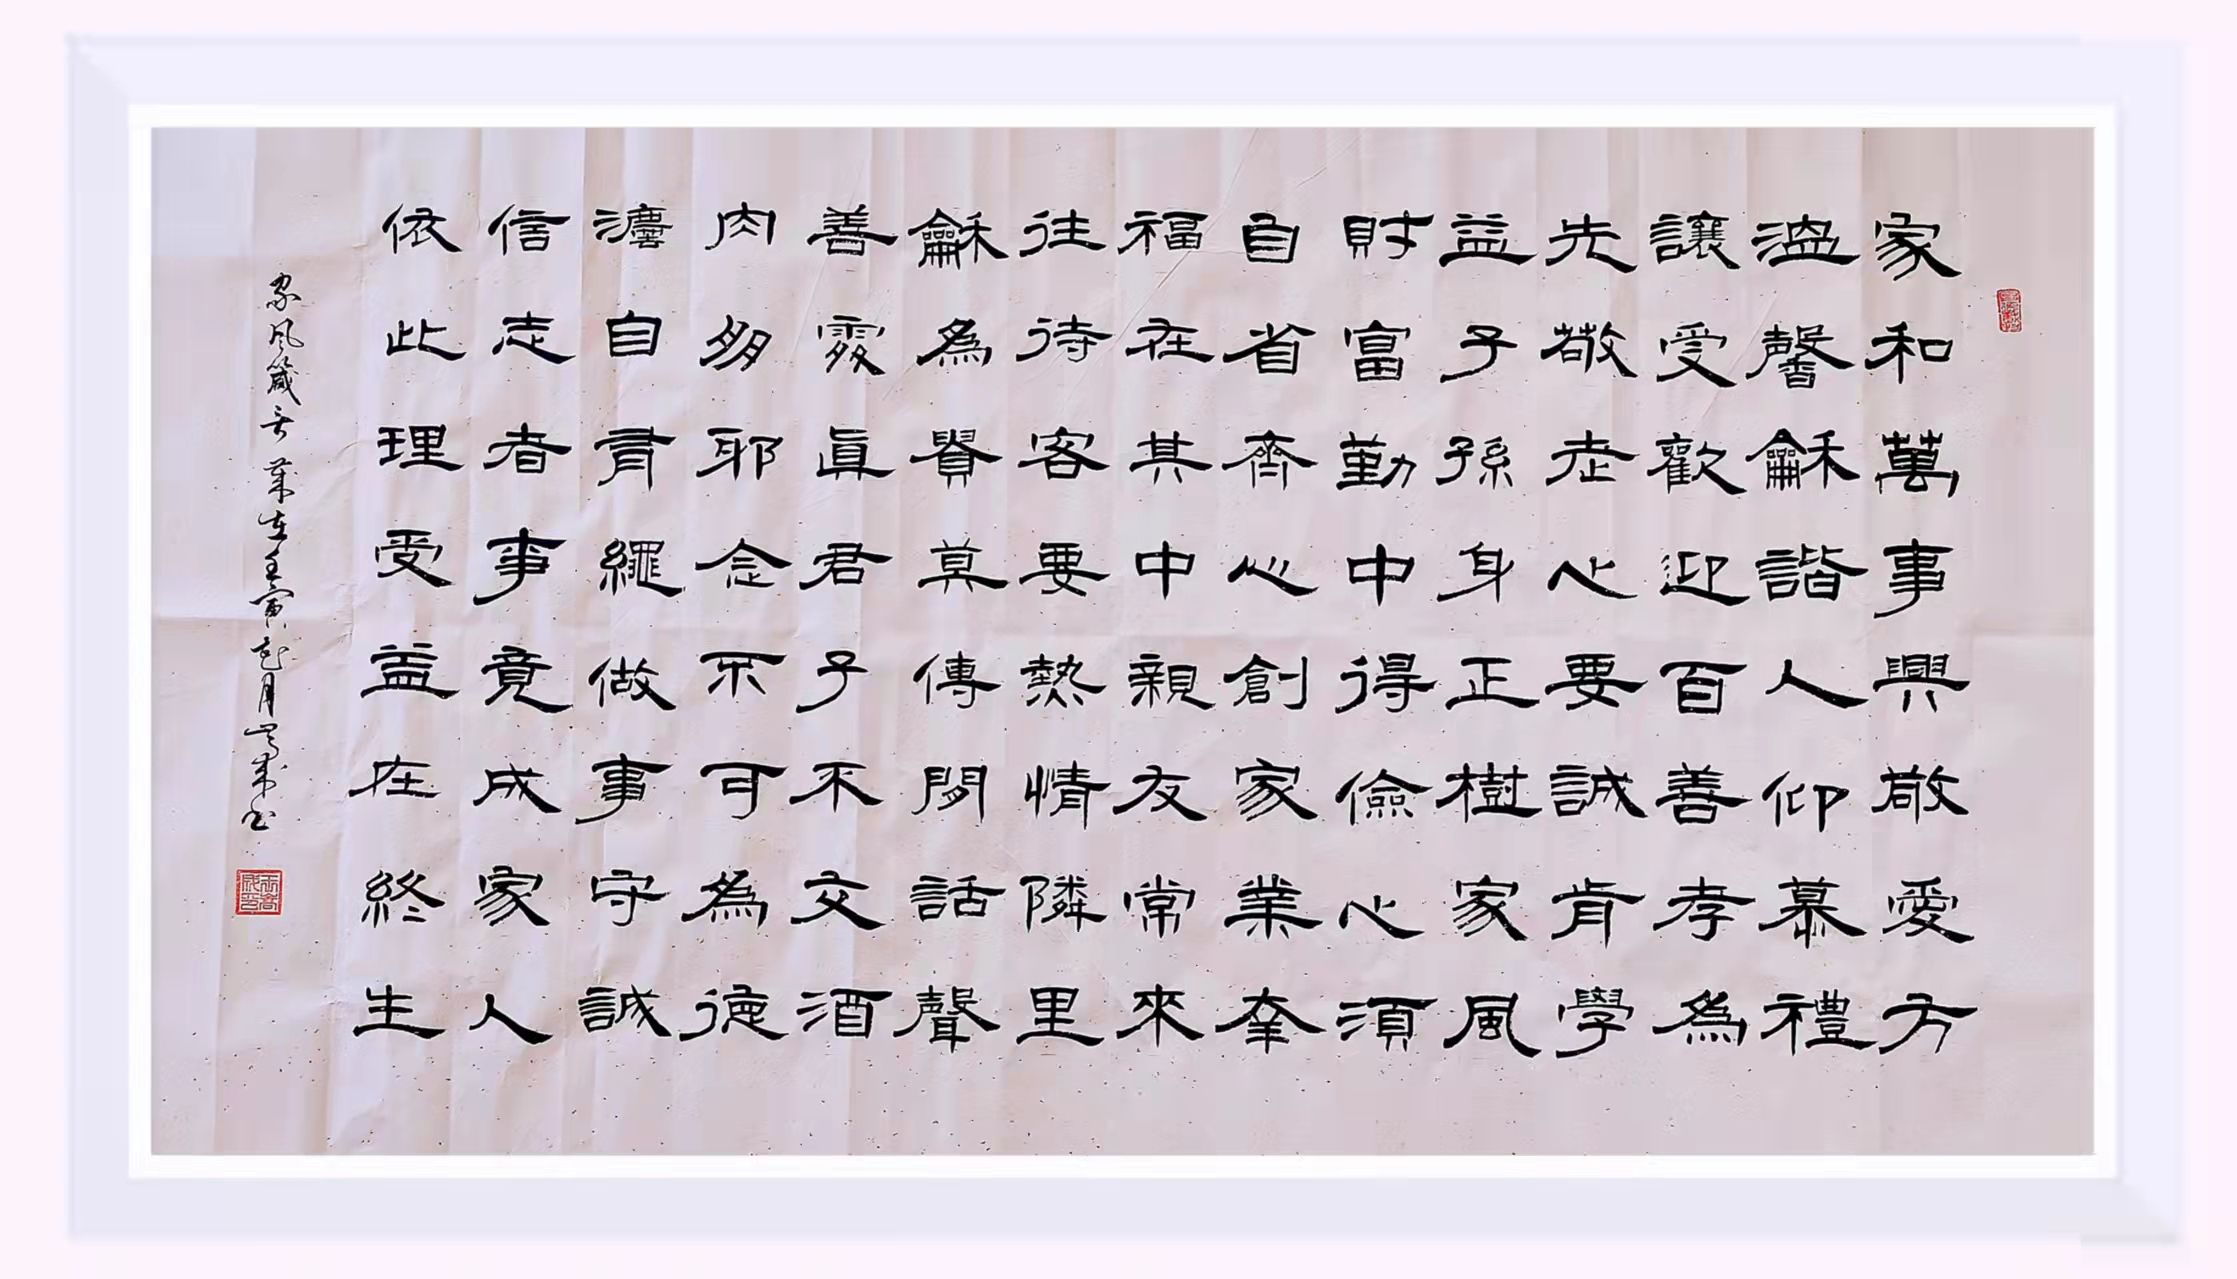 家和萬事興敬愛方
溫馨龢諧人仰慕禮
讓受歡迎百善孝為
先敬老心要誠肯學
益子孫身正樹家風
財富勤中得儉心須
自省齊心創家業幸
福在其中親友常來
往待客要熱情隣里
龢為貴莫傳閒話聲
善交真君子不交酒
肉朋邪念不可為德
自肩繩做事守誠
信志者事竟成家人
依此理受益在終生
家風箴言 歲在壬寅花月 書